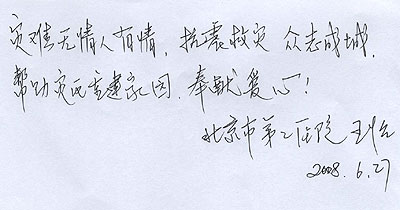 灾难无情人有情，抗震救灾 众志成城，
帮助灾民重建家园，奉献爱心！
北京市第二医院
2008.6.27